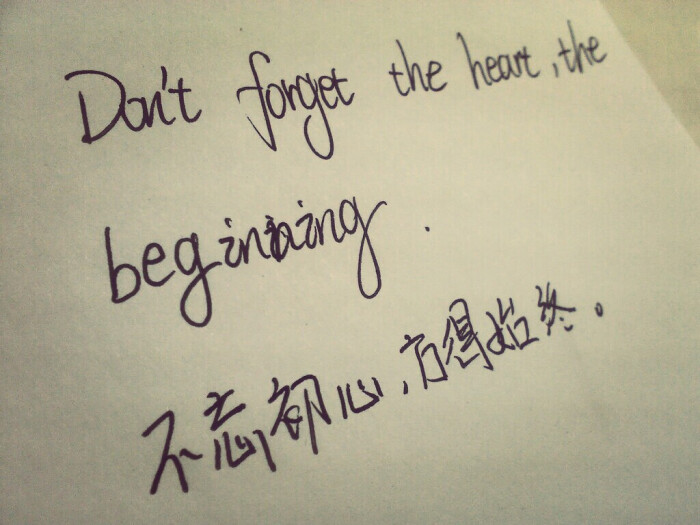 Don't forget the heart, the
beginning.
不忘初心,方得始终。